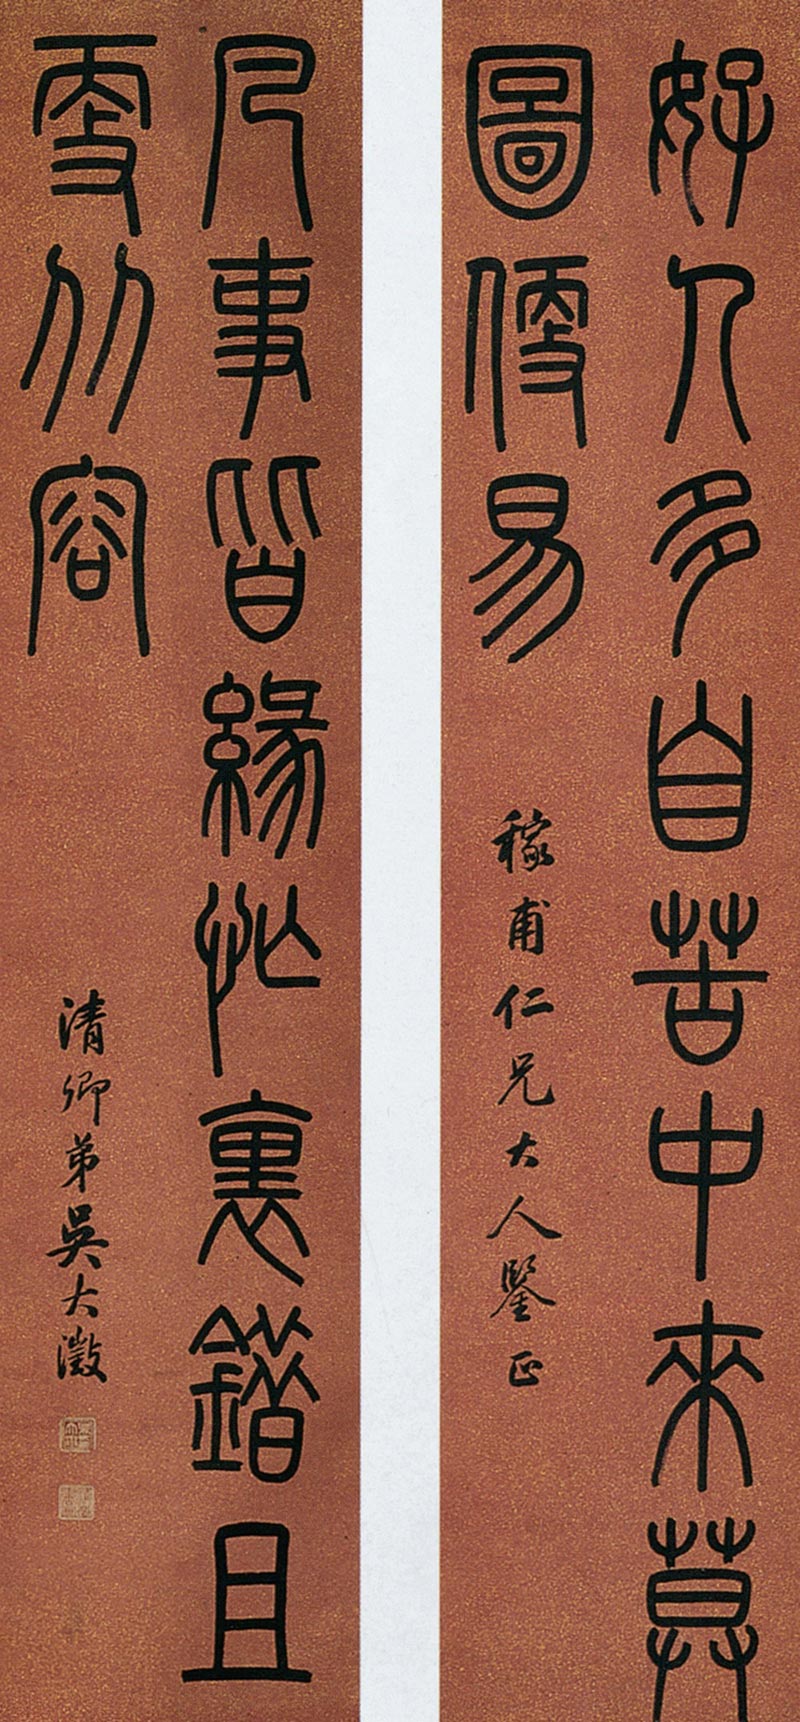 好人多自苦中來莫
圖便易
稼甫仁兄大人鑒正
凡事皆緣忙裏錯且
更从容
清卿弟吳大澂